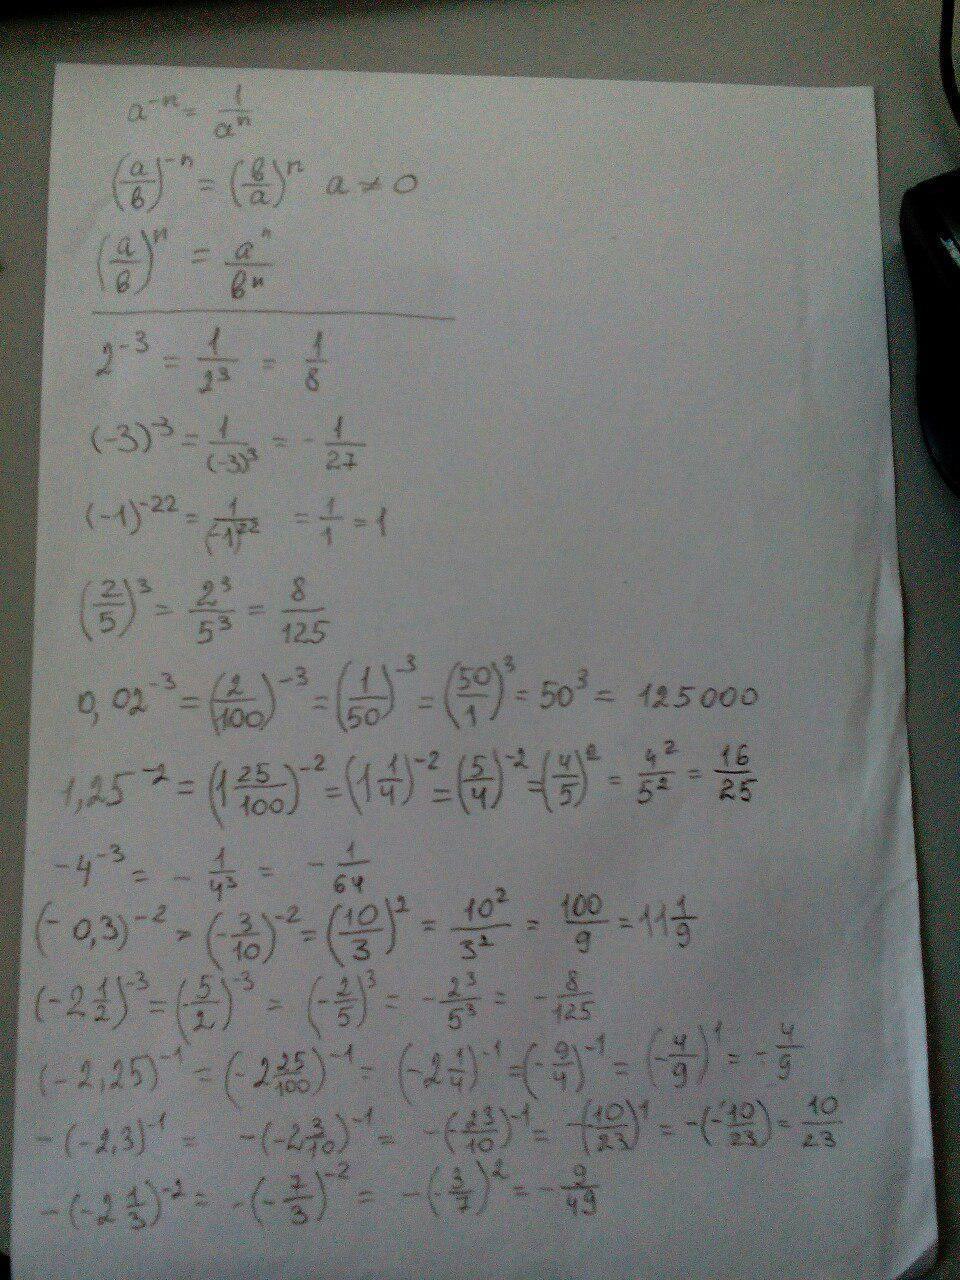 a⁻ⁿ = 1/aⁿ
(а/в)⁻ⁿ = (в/а)ⁿ а ≠ 0
(а/в)ⁿ = аⁿ/вⁿ
2⁻³ = 1/2³ = 1/8
(-3)⁻³ = 1/(-3)³ = - 1/27
(-1)⁻²² = 1/(-1)²² = 1/1 = 1
(2/5)³ = 2³/5³ = 8/125
0,02⁻³ = (2/100)⁻³ = (1/50)⁻³ = (50/1)³ = 50³ = 125000
1,25⁻² = (1 25/100)⁻² = (1 1/4)⁻² = (5/4)⁻² = (4/5)² = 4²/5² = 16/25
-4⁻³ = - 1/4³ = - 1/64
(-0,3)⁻² = (-3/10)⁻² = (10/3)² = 10²/3² = 100/9 = 11 1/9
(-2 1/2)⁻³ = (-5/2)⁻³ = (-2/5)³ = - 2³/5³ = - 8/125
(-2,25)⁻¹ = (-2 25/100)⁻¹ = (-2 1/4)⁻¹ = (-9/4)⁻¹ = (-4/9)¹ = - 4/9
-(-2,3)⁻¹ = -(-2 3/10)⁻¹ = -(-23/10)⁻¹ = -(-10/23)¹ = -(-10/23) = 10/23
-(-2 1/3)⁻² = -(-7/3)⁻² = -(-3/7)² = - 9/49